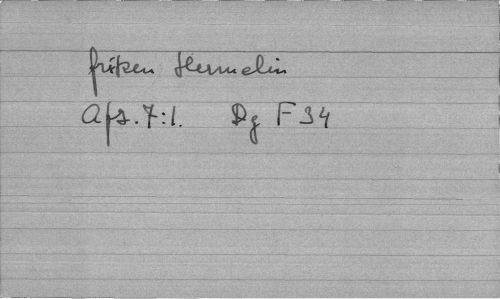 friken Hermelin
Afs. 7:1. Dg F 34